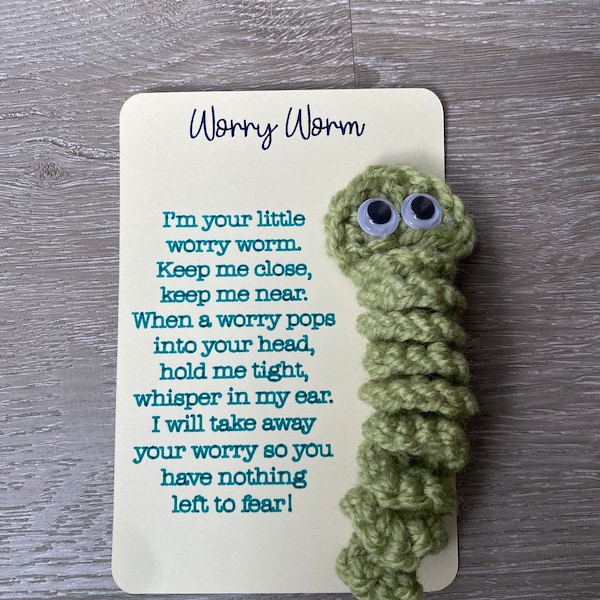 Worry Worm
I'm your little
worry worm.
Keep me close,
keep me near.
When a worry pops
into your head,
hold me tight,
whisper in my ear.
I will take away
your worry so you
have nothing
left to fear!